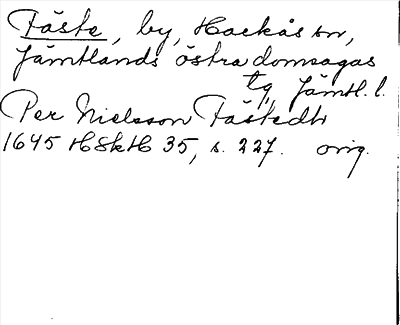 Fäste, by, Hackås sn,
Jämtlands östra domsagas
tg, Jämtl. l.
Per Nielsson Fästedt
1645 HSkH 35, s. 227. orig.